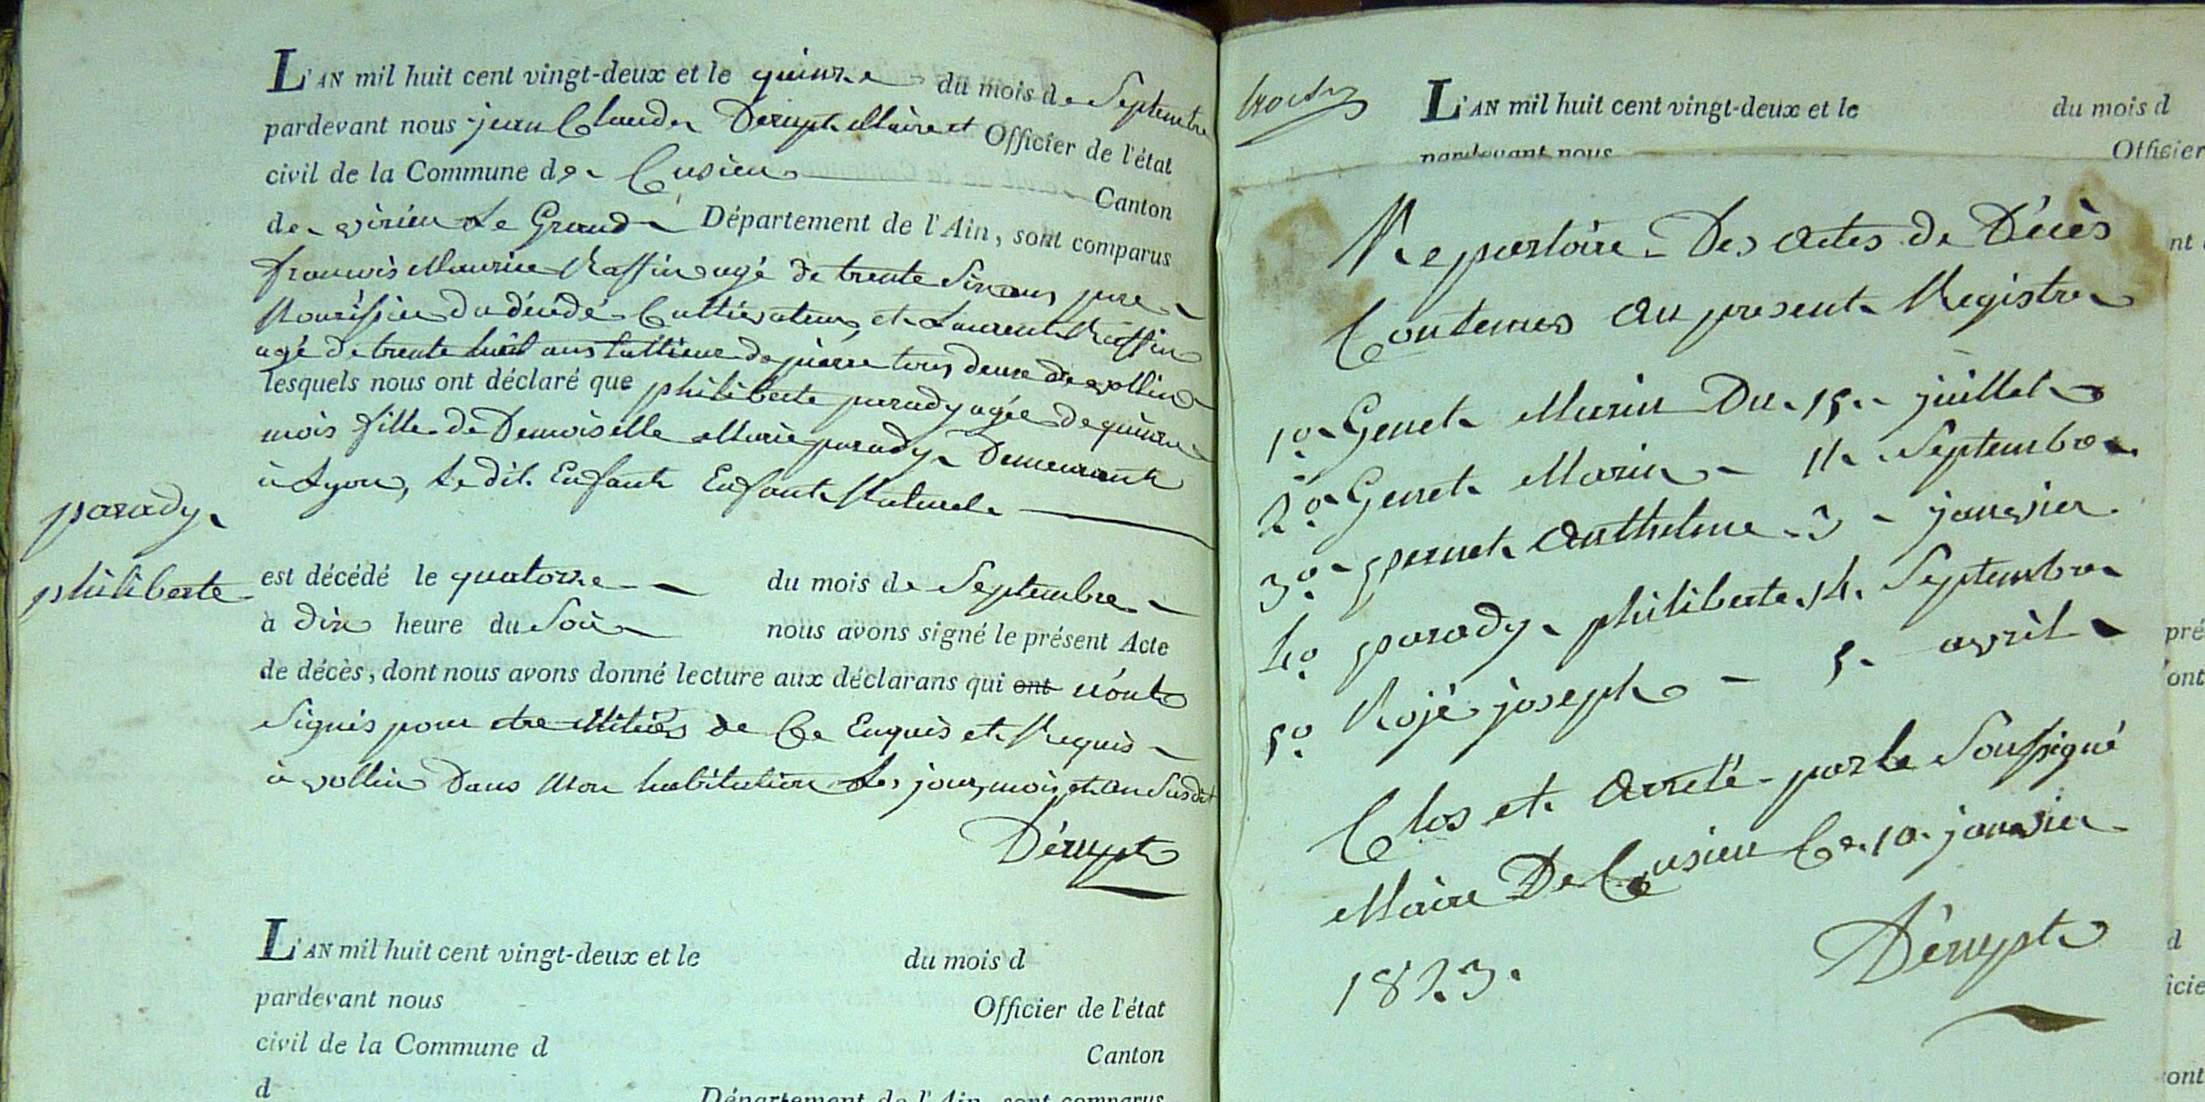 L'AN mil huit cent vingt-deux et le quinze du mois de Septembre
pardevant nous jean Claude Dérupt Maire et Officier de l'état
civil de la Commune de Cusieu Canton
de virieu Le Grand Département de l'Ain, sont comparus
francois Maurice Raffin agé de trente Six ans pere
Nourissier du décédé Cultivateur, et Laurent Raffin
agé de trente huit ans Cultivateur de pierre tous deux de vollin
lesquels nous ont déclaré que philiberte parady agée de quinze
mois fille de Demoiselle Marie parady Demeurant
à Lyon, Ledit Enfant Enfant Naturel
parady
philiberte
est décédé le quatorze du mois de Septembre
à dix heure du Soir nous avons signé le présent Acte
de décès, dont nous avons donné lecture aux déclarans qui ont n'ont
Signés pour etre illitérés de Ce Enquis et Requis
à vollin Dans Mon habitation Les jour, mois et an Susdit
Dérupt
L'AN mil huit cent vingt-deux et le du mois d
pardevant nous Officier de l'état
civil de la Commune d Canton
d Département de l'Ain, sont comparus
L'AN mil huit cent vingt-deux et le du mois d
pardevant nous Officier
Repertoire Des actes de Décès
Contenus au present Registre
1º Genet Marin Du 15 juillet
2º Genet Marin 11 Septembre
3º pernet Anthelme 3 janvier
4º parady philiberte 14 Septembre
5º Rojé joseph 5 avril
Clos et Arreté par le Soussigné
Maire De Cusieu Ce 10 janvier
1823.
Dérupt
nt
pré
ont
d
icie
ont